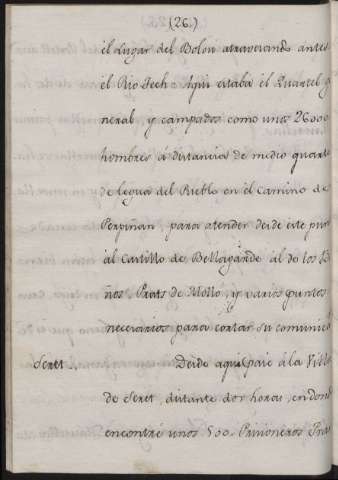 (26.)
el Lugar del Bolou atravezando antes
el Rio Tech: Aqui estaba el Quartel g
neral, y campados como unos 26000
hombres á distancia de medio quarto
de legua del Pueblo en el Camino de
Perpiñan, para atender desde este pun
al Castillo de Bellagarde al de los B
ños, Prats de Mollo, y varios puntos
necesarios para cortar su comunic
Seret. Desde aqui pasé á la Vill
de Seret, distante dos horas, en don
encontré unos 500. Prisioneros Fra